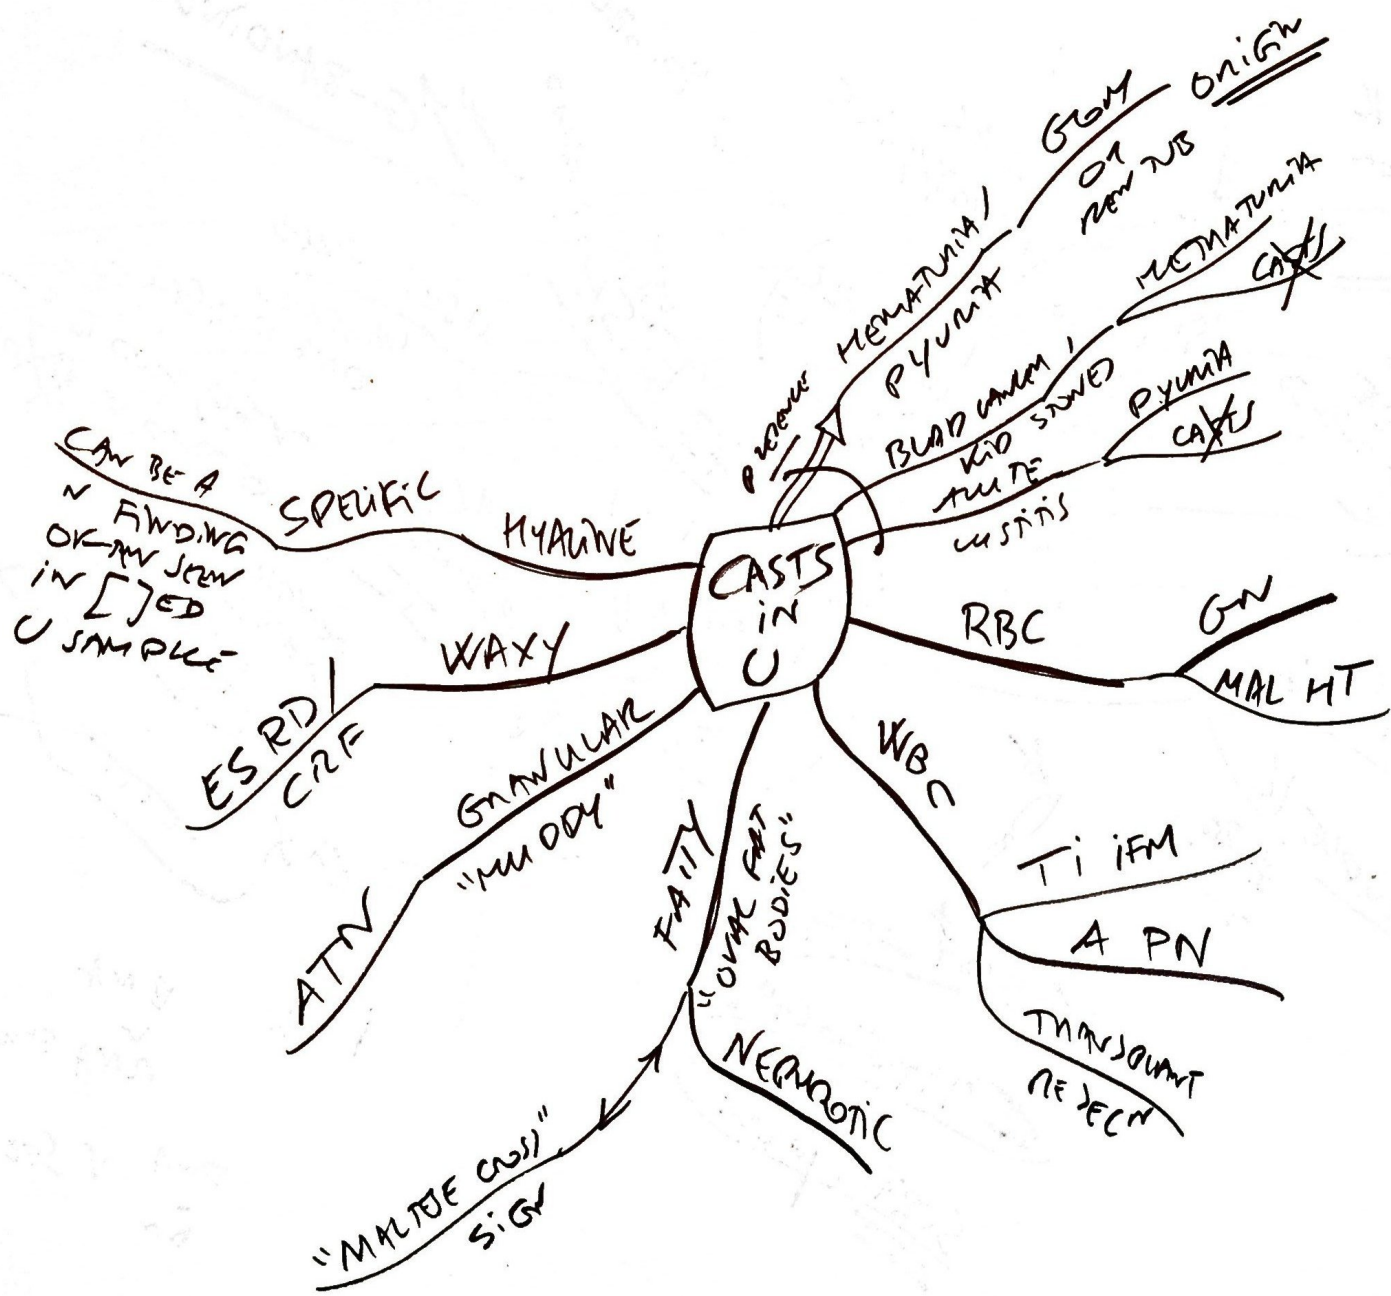 CASTS
IN
U
PRESENCE
HEMATURIA /
PYURIA
GLOM
OR
REN TUB
ORIGIN
BLAD CANCER,
KID STONES
HEMATURIA
CASTS
ACUTE
CYSTITIS
PYURIA
CASTS
RBC
GN
MAL HT
WBC
TI IFM
A PN
TRANSPLANT
REJECN
FATTY
"OVAL FAT
BODIES"
NEPHROTIC
"MALTESE CROSS"
SIGN
GRANULAR
"MUDDY"
ATN
WAXY
ESRD /
CRF
HYALINE
SPECIFIC
CAN BE A
N FINDING
OR SEEN
IN [ ]ED
U SAMPLE